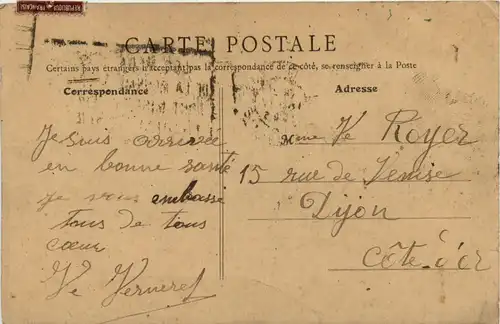 REPUBLIQUE FRANÇAISE
CARTE POSTALE
Certains pays étrangers n'acceptant pas la correspondance de ce côté, se renseigner à la Poste
Correspondance
Adresse
Je suis arrivée
en bonne santé
je vous embrasse
tous de tous
cœur
Ve Verneret
Mme Ve Royer
15 rue de Venise
Dijon
Côte-d'or